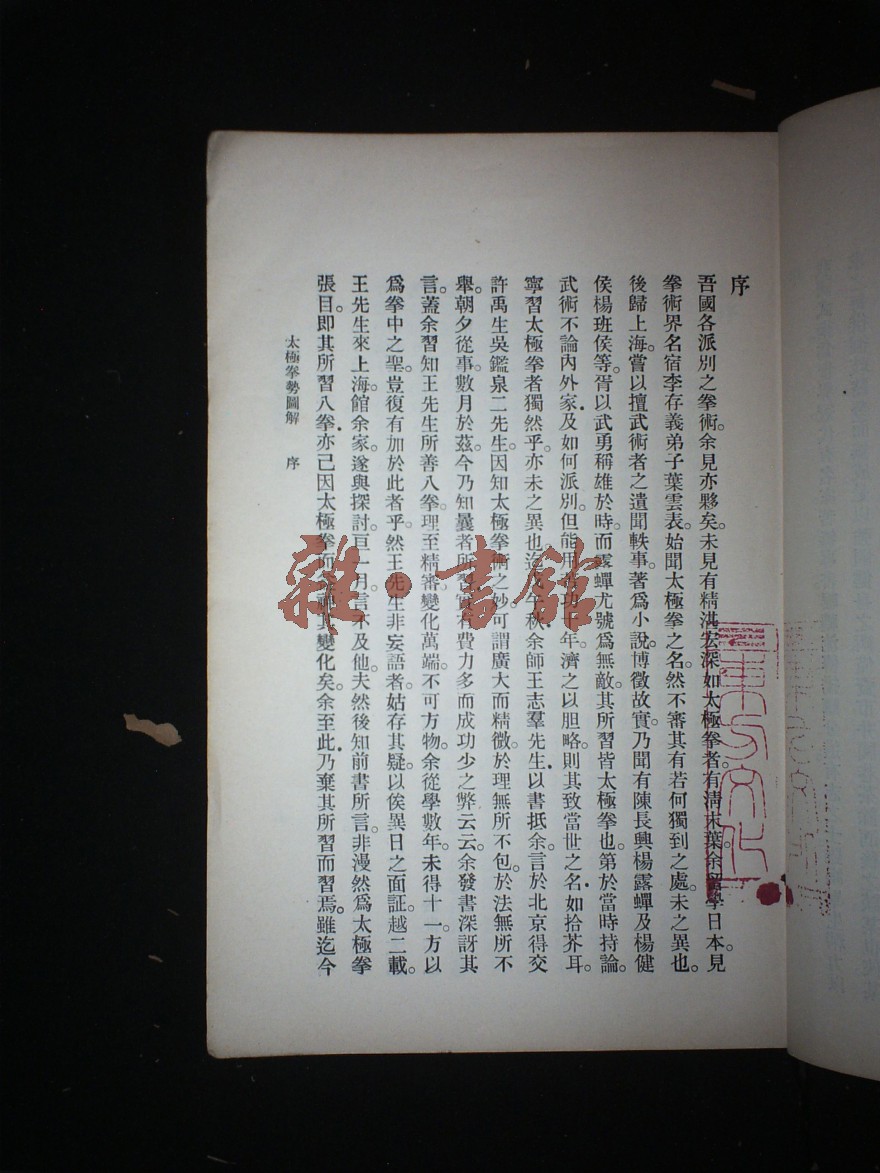 序
吾國各派別之拳術。余見亦夥矣。未見有精湛宏深如太極拳者。有清末葉。余留學日本。見
拳術界名宿李存義弟子葉雲表。始聞太極拳之名。然不審其有若何獨到之處。未之異也。
後歸上海。嘗以擅武術者之遺聞軼事。著爲小說。博徵故實。乃聞有陳長興楊露蟬及楊健
侯楊班侯等。胥以武勇稱雄於時。而露蟬尤號爲無敵。其所習皆太極拳也。第於當時持論。
武術不論內外家。及如何派別。但能用苦功十年。濟之以胆略。則其致當世之名。如拾芥耳。
寧習太極拳者獨然乎。亦未之異也。迄戊午秋。余師王志羣先生。以書抵余。言於北京得交
許禹生吳鑑泉二先生。因知太極拳術之妙。可謂廣大而精微。於理無所不包。於法無所不
舉。朝夕從事。數月於茲。今乃知曩者所習。實有費力多而成功少之弊云云。余發書深訝其
言。蓋余習知王先生所善八拳。理至精審。變化萬端。不可方物。余從學數年。未得十一。方以
爲拳中之聖。豈復有加於此者乎。然王先生非妄語者。姑存其疑。以俟異日之面証。越二載。
王先生來上海。館余家。遂與探討。亘一月。言不及他。夫然後知前書所言。非漫然爲太極拳
張目。即其所習八拳。亦已因太極拳而 其變化矣。余至此。乃棄其所習而習焉。雖迄今
太極拳勢圖解 序
雜·書館
東方文化